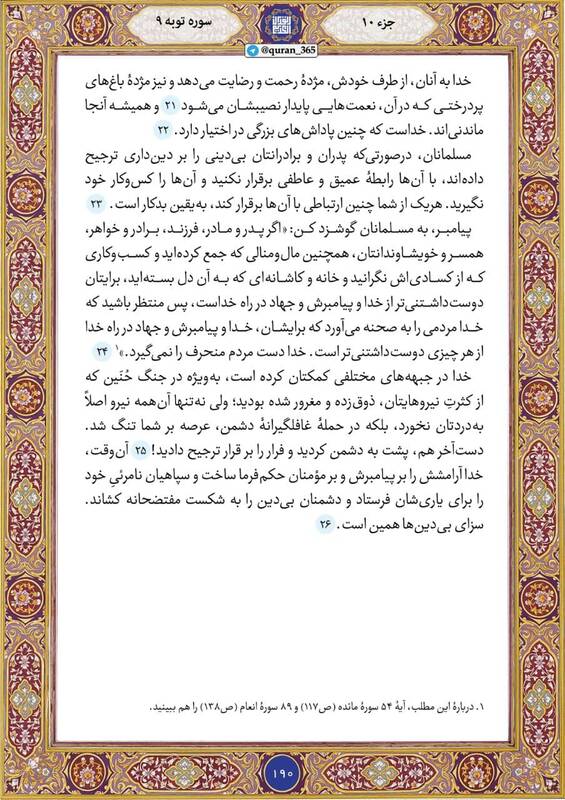 جزء ۱۰
سوره توبه ۹
@quran_365
خدا به آنان، از طرف خودش، مژدهٔ رحمت و رضایت می‌دهد و نیز مژدهٔ باغ‌های
پردرختی که در آن، نعمت‌هایی پایدار نصیبشان می‌شود ۲۱ و همیشه آنجا
ماندنی‌اند. خداست که چنین پاداش‌های بزرگی در اختیار دارد. ۲۲
مسلمانان، درصورتی‌که پدران و برادرانتان بی‌دینی را بر دین‌داری ترجیح
داده‌اند، با آن‌ها رابطهٔ عمیق و عاطفی برقرار نکنید و آن‌ها را کس‌وکار خود
نگیرید. هریک از شما چنین ارتباطی با آن‌ها برقرار کند، به‌یقین بدکار است. ۲۳
پیامبر، به مسلمانان گوشزد کن: «اگر پدر و مادر، فرزند، برادر و خواهر،
همسر و خویشاوندانتان، همچنین مال‌ومنالی که جمع کرده‌اید و کسب‌وکاری
که از کسادی‌اش نگرانید و خانه و کاشانه‌ای که به آن دل بسته‌اید، برایتان
دوست‌داشتنی‌تر از خدا و پیامبرش و جهاد در راه خداست، پس منتظر باشید که
خدا مردمی را به صحنه می‌آورد که برایشان، خدا و پیامبرش و جهاد در راه خدا
از هر چیزی دوست‌داشتنی‌تر است. خدا دست مردم منحرف را نمی‌گیرد.»۱ ۲۴
خدا در جبهه‌های مختلفی کمکتان کرده است، به‌ویژه در جنگ حُنَین که
از کثرتِ نیروهایتان، ذوق‌زده و مغرور شده بودید؛ ولی نه‌تنها آن‌همه نیرو اصلاً
به‌دردتان نخورد، بلکه در حملهٔ غافلگیرانهٔ دشمن، عرصه بر شما تنگ شد.
دست‌آخر هم، پشت به دشمن کردید و فرار را بر قرار ترجیح دادید! ۲۵ آن‌وقت،
خدا آرامشش را بر پیامبرش و بر مؤمنان حکم‌فرما ساخت و سپاهیان نامرئیِ خود
را برای یاری‌شان فرستاد و دشمنان بی‌دین را به شکست مفتضحانه کشاند.
سزای بی‌دین‌ها همین است. ۲۶
۱. دربارهٔ این مطلب، آیهٔ ۵۴ سورهٔ مائده (ص۱۱۷) و ۸۹ سورهٔ انعام (ص۱۳۸) را هم ببینید.
۱۹۰